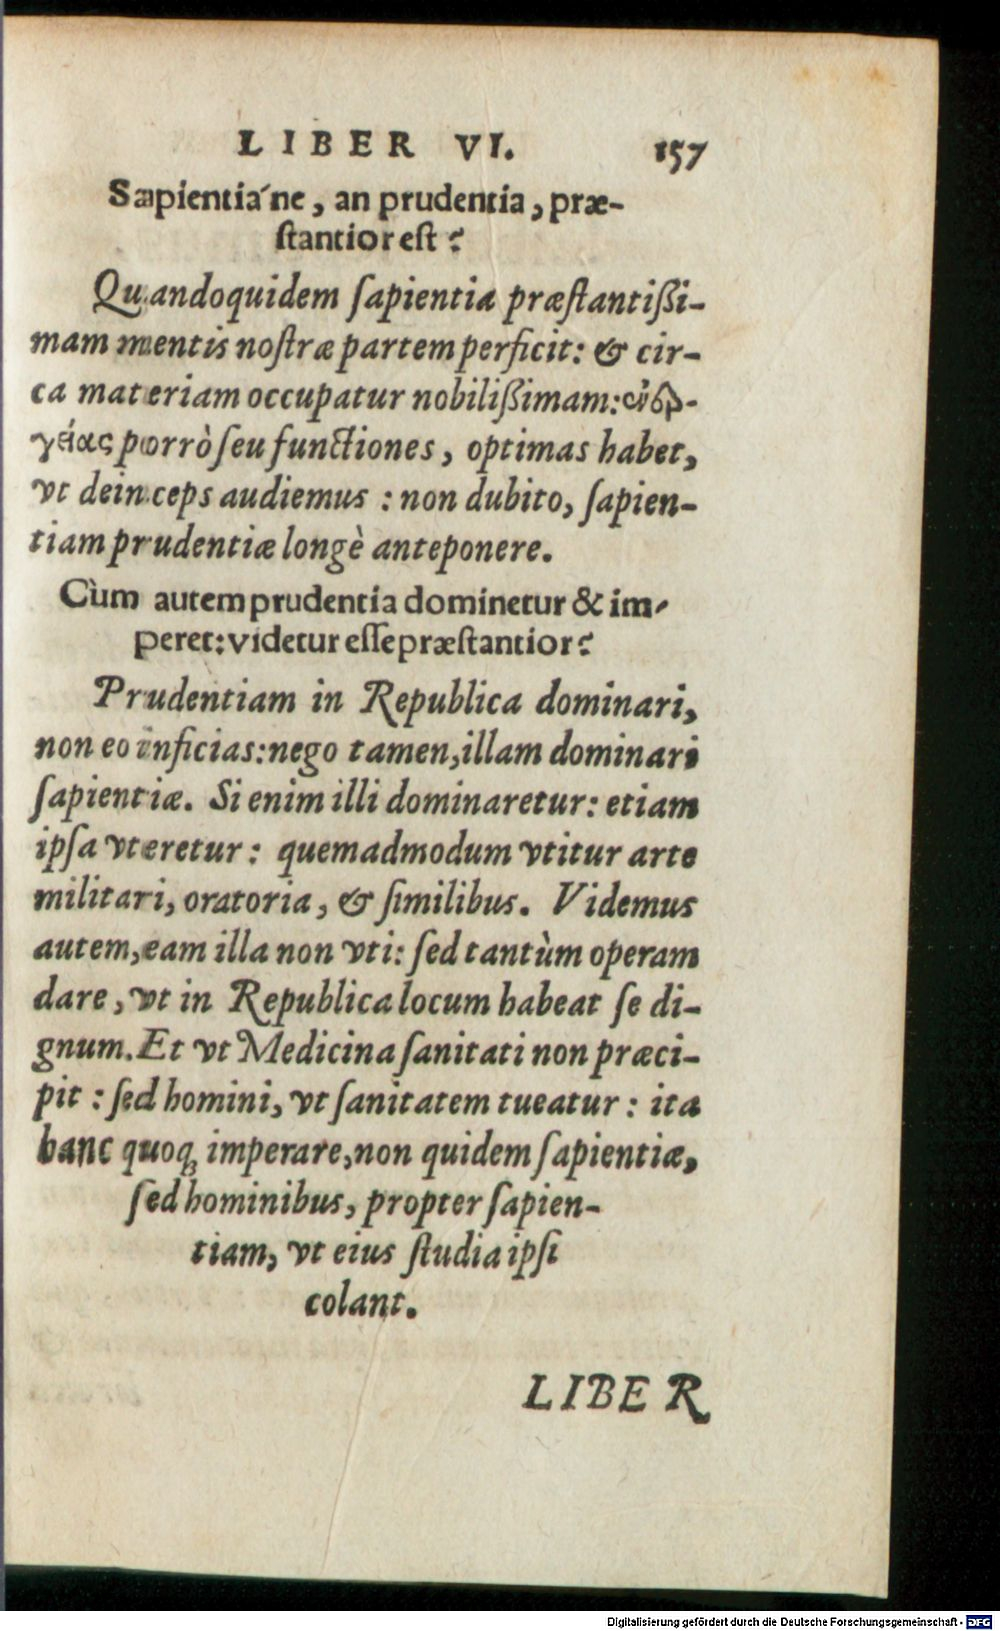 LIBER VI. 157
Sapientiáne, an prudentia, præ-
stantior est?
Quandoquidem ſapientia præſtantißi-
mam mentis noſtræ partem perficit: & cir-
ca materiam occupatur nobilißimam: ἐνερ-
γείας porrò ſeu functiones, optimas habet,
vt deinceps audiemus: non dubito, ſapien-
tiam prudentiæ longè anteponere.
Cùm autem prudentia dominetur & im-
peret: videtur eſſe præſtantior?
Prudentiam in Republica dominari,
non eo inficias: nego tamen, illam dominari
ſapientiæ. Si enim illi dominaretur: etiam
ipſa vteretur: quemadmodum vtitur arte
militari, oratoria, & ſimilibus. Videmus
autem, eam illa non vti: ſed tantùm operam
dare, vt in Republica locum habeat ſe di-
gnum. Et vt Medicina ſanitati non præci-
pit: ſed homini, vt ſanitatem tueatur: ita
hanc quoq; imperare, non quidem ſapientiæ,
ſed hominibus, propter ſapien-
tiam, vt eius ſtudia ipſi
colant.
LIBER
Digitalisierung gefördert durch die Deutsche Forschungsgemeinschaft - DFG